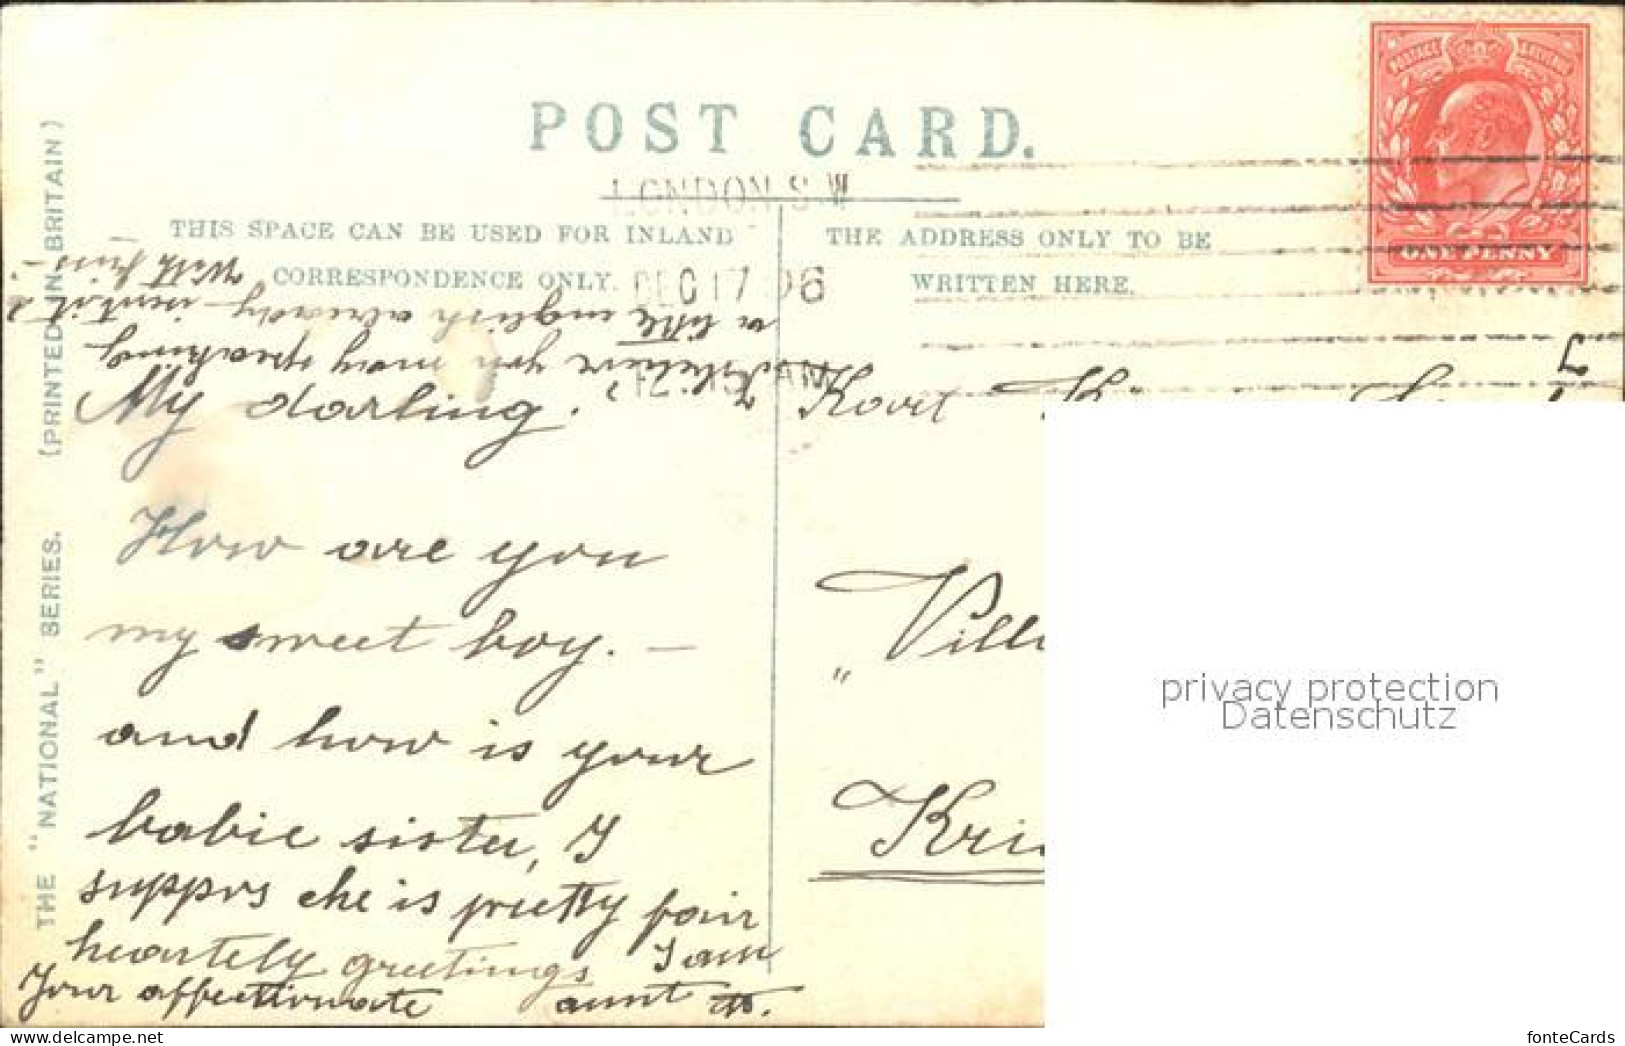 POST CARD.
LONDON.S.W
DEC 17 06
12 15 AM
POSTAGE REVENUE
ONE PENNY
THIS SPACE CAN BE USED FOR INLAND
CORRESPONDENCE ONLY.
THE ADDRESS ONLY TO BE
WRITTEN HERE.
THE "NATIONAL" SERIES. (PRINTED IN BRITAIN)
My darling!
How are you
my sweet boy. —
and how is your
babie sister, I
suppos she is pretty fair
heartely greetings I am
Your affectionate aunt
I believe you may speaking
a little english already
With
Karl
"Vill
Kri
privacy protection
Datenschutz
fonteCards